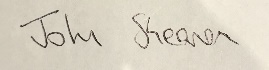 John Shearer